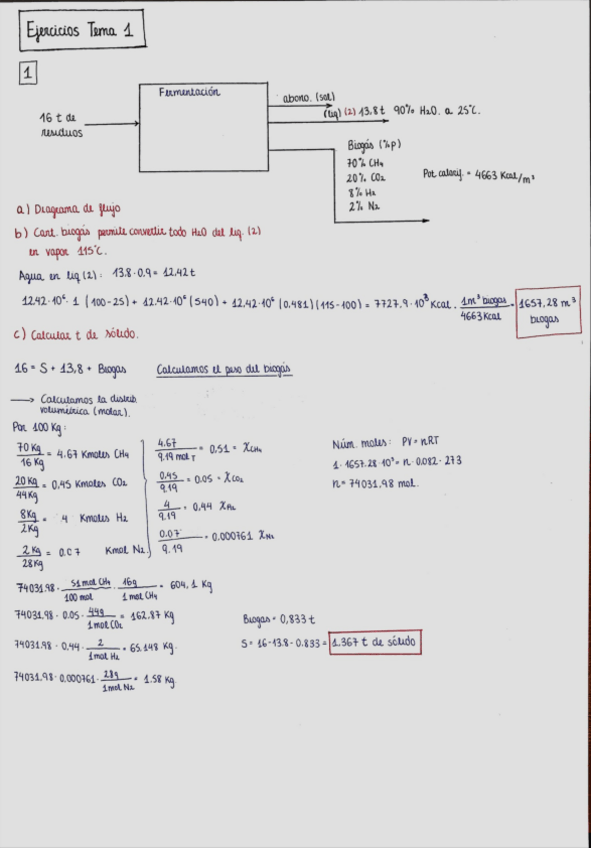 Ejercicios Tema 1
1
Fermentación
16 t de
residuos
abono. (sol)
(liq) (2) 13,8t 90% H2O. a 25°C.
Biogás (%p)
70% CH4
20% CO2
8% H2
2% N2
Pot calorif. = 4663 Kcal/m³
a) Diagrama de flujo
b) Cant. biogás permite convertir todo H2O del liq. (2)
en vapor 115°C.
Agua en liq (2): 13.8·0.9 = 12.42 t
12.42·10⁶·1 (100-25) + 12.42·10⁶ (540) + 12.42·10⁶ (0.481)(115-100) = 7727.9·10³ Kcal · 1m³ biogas / 4663 Kcal = 1657,28 m³ biogas
c) Calcular t de sólido.
16 = S + 13,8 + Biogas Calculamos el peso del biogás
→ Calculamos la distrib.
volumétrica (molar).
Por 100 Kg:
70 Kg / 16 Kg = 4.67 Kmoles CH4
20 Kg / 44 Kg = 0,45 Kmoles CO2
8 Kg / 2 Kg = 4 Kmoles H2
2 Kg / 28 Kg = 0.07 Kmol N2
4.67 / 9.19 mol T = 0.51 = XCH4
0.45 / 9.19 = 0.05 = XCO2
4 / 9.19 = 0.44 XH2
0.07 / 9.19 = 0.000761 XN2
Núm. moles: PV = nRT
1·1657.28·10³ = n·0.082·273
n = 74031.98 mol.
74031.98 · 51 mol CH4 / 100 mol · 16g / 1 mol CH4 = 604,1 Kg
74031.98 · 0.05 · 44g / 1 mol CO2 = 162.87 Kg
74031.98 · 0.44 · 2 / 1 mol H2 = 65.148 Kg.
74031.98 · 0.000761 · 28g / 1 mol N2 = 1.58 Kg.
Biogas = 0,833 t
S = 16-13.8-0.833 = 1.367 t de sólido